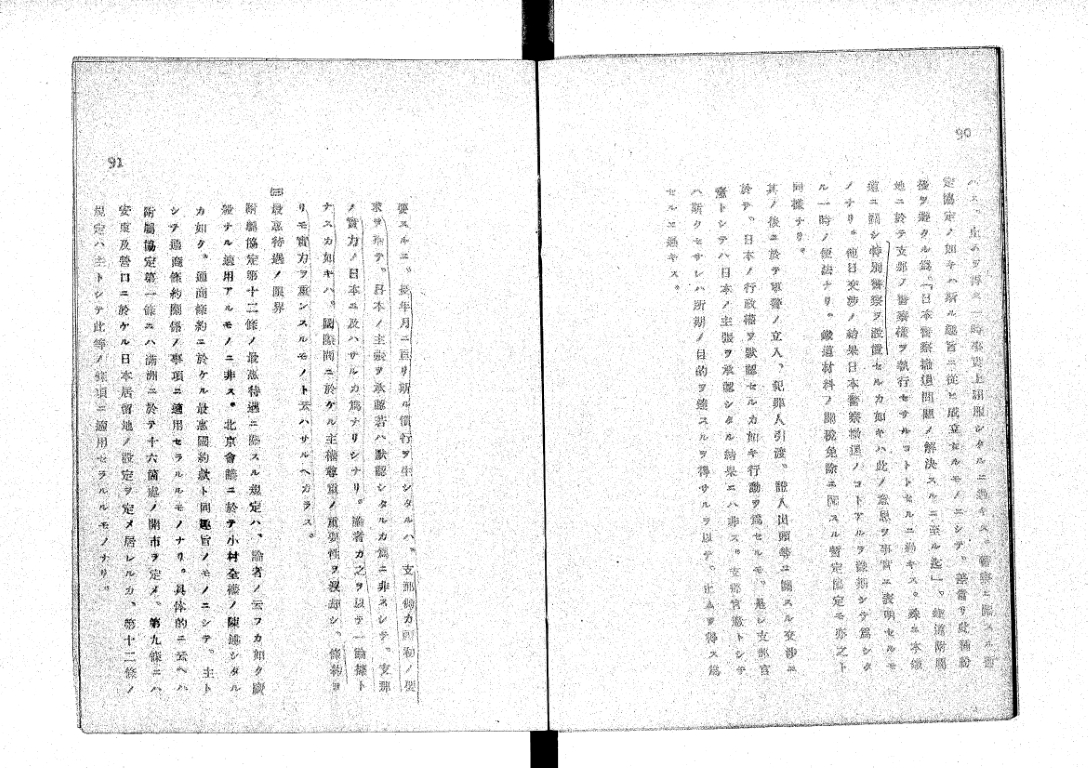 90
ハス、止ムヲ得ス一時事實上詔服シタルニ過キス。警察ニ關スル暫
定協定ノ如キハ斯ル趣旨ニ從ヒ成立セルモノニシテ、當リ此種紛
優ヲ避クル爲、「日本警察撤退問題ノ解決スルニ至ル迄」、鐵道附屬
地ニ於テ支那ノ警察權ヲ執行セサルコトトセルニ過キス。殊ニ本
道ニ關シ特別警察ヲ設置セルカ如キハ此ノ意思ヲ事實ニ表明セルモ
ノナリ。他日交渉ノ結果日本警察撤退ノコトアルヲ豫期シテ爲シタ
ル一時ノ便法ナリ。鐵道材料ノ關稅免除ニ關スル暫定協定モ亦之ト
同樣ナリ。
其ノ後ニ於テ軍警ノ立入、犯罪人引渡、證人出頭等ニ關スル交渉ニ
於テ、日本ノ行政權ヲ默認セルカ如キ行動ヲ爲セルモ、是レ支那官
憲トシテハ日本ノ主張ヲ承認シタル結果ニハ非ス。支那官憲トシテ
ハ斯クセサレハ所期ノ目的ヲ達スルヲ得サルヲ以テ、止ムヲ得ス爲
セルニ過キス。
91
要スルニ、長年月ニ亘リ斯ル慣行ヲ生シタルハ、支那側カ日本ノ要
求ヲ テ、日本ノ主張ヲ承認若ハ默認シタルカ爲ニ非スシテ、支那
ノ實力ノ日本ニ及ハサルカ爲ナリシナリ。論者カ之ヲ以テ一論據ト
ナスカ如キハ、國際間ニ於ケル主權尊重ノ重要性ヲ沒却シ、條約ヨ
リモ實力ヲ重ンスルモノト云ハサルヘカラス。
最惠待遇ノ限界
附屬協定第十二條ノ最惠待遇ニ關スル規定ハ、論者ノ云フカ如ク廣
汎ナル適用アルモノニ非ス。北京會議ニ於テ小村全權ノ陳述シタル
カ如ク、通商條約ニ於ケル最惠國約款ト同趣旨ノモノニシテ、主ト
シテ通商條約關係ノ事項ニ適用セラルルモノナリ。具體的ニ云ヘハ
附屬協定第一條ニハ滿洲ニ於テ十六箇處ノ開市ヲ定メ、第九條ニハ
安東及營口ニ於ケル日本居留地ノ設定ヲ定メ居レルカ、第十二條ノ
規定ハ主トシテ此等ノ條項ニ適用セラルルモノナリ。